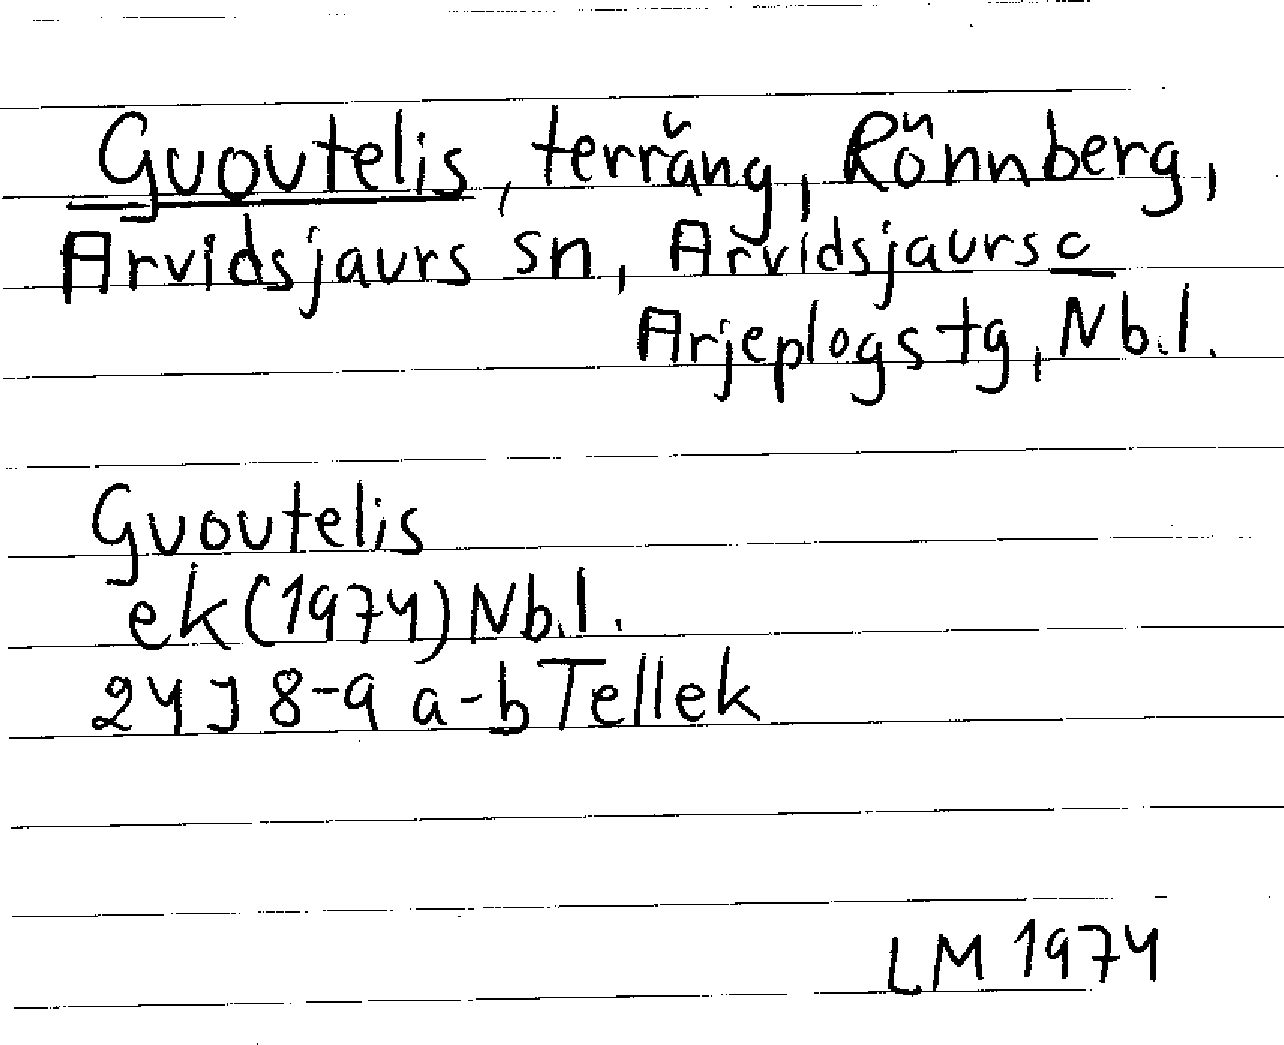 Guoutelis, terräng, Rönnberg,
Arvidsjaurs sn, Arvidsjaurs o
Arjeplogs tg, Nb.l.
Guoutelis
ek (1974) Nb.l.
24J 8-9 a-b Tellek
LM 1974